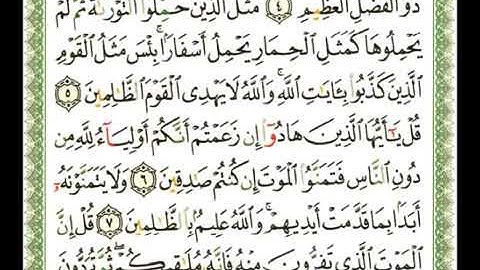 ذُو ٱلۡفَضۡلِ ٱلۡعَظِيمِ ٤ مَثَلُ ٱلَّذِينَ حُمِّلُواْ ٱلتَّوۡرَىٰةَ ثُمَّ لَمۡ
يَحۡمِلُوهَا كَمَثَلِ ٱلۡحِمَارِ يَحۡمِلُ أَسۡفَارَۢاۚ بِئۡسَ مَثَلُ ٱلۡقَوۡمِ
ٱلَّذِينَ كَذَّبُواْ بِـَٔايَٰتِ ٱللَّهِۚ وَٱللَّهُ لَا يَهۡدِي ٱلۡقَوۡمَ ٱلظَّٰلِمِينَ ٥
قُلۡ يَٰٓأَيُّهَا ٱلَّذِينَ هَادُوٓاْ إِن زَعَمۡتُمۡ أَنَّكُمۡ أَوۡلِيَآءُ لِلَّهِ مِن
دُونِ ٱلنَّاسِ فَتَمَنَّوُاْ ٱلۡمَوۡتَ إِن كُنتُمۡ صَٰدِقِينَ ٦ وَلَا يَتَمَنَّوۡنَهُۥٓ
أَبَدَۢا بِمَا قَدَّمَتۡ أَيۡدِيهِمۡۚ وَٱللَّهُ عَلِيمُۢ بِٱلظَّٰلِمِينَ ٧ قُلۡ إِنَّ
ٱلۡمَوۡتَ ٱلَّذِي تَفِرُّونَ مِنۡهُ فَإِنَّهُۥ مُلَٰقِيكُمۡۖ ثُمَّ تُرَدُّونَ